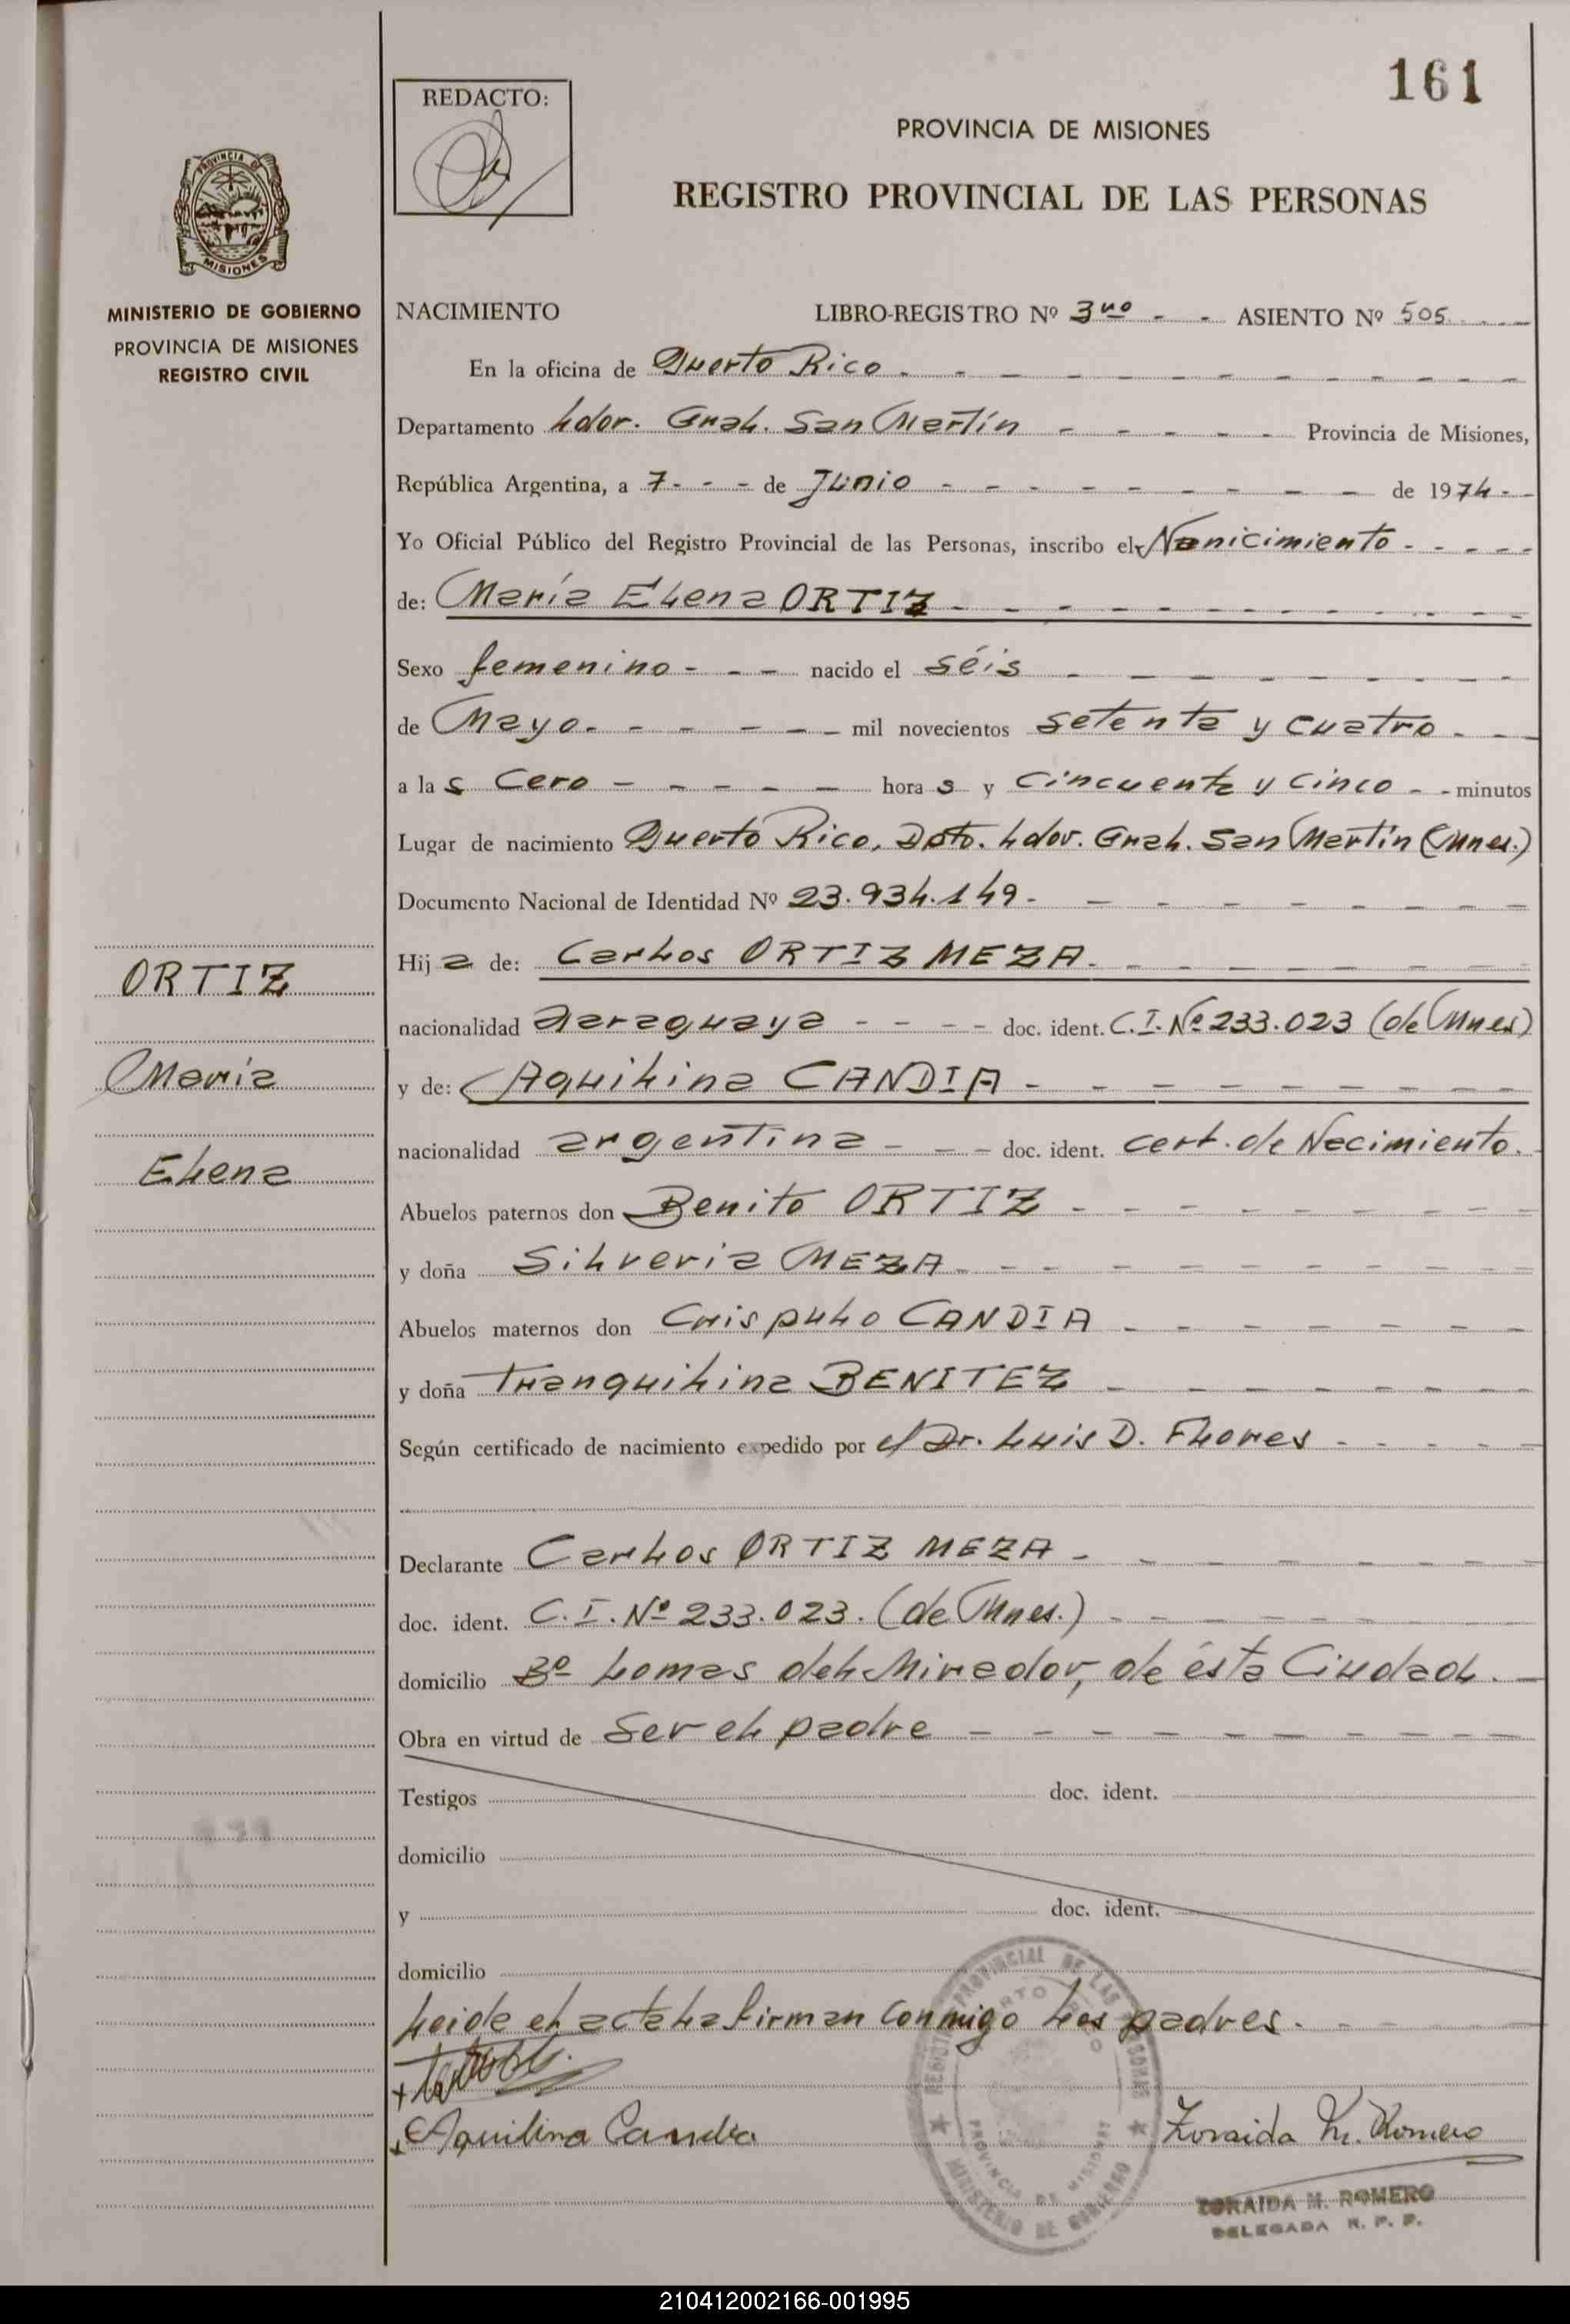 161
REDACTO:
PROVINCIA DE MISIONES
REGISTRO PROVINCIAL DE LAS PERSONAS
PROVINCIA DE
MISIONES
MINISTERIO DE GOBIERNO
PROVINCIA DE MISIONES
REGISTRO CIVIL
NACIMIENTO LIBRO-REGISTRO Nº 3ro - - ASIENTO Nº 505
En la oficina de Puerto Rico
Departamento Ldor. Gral. San Martín Provincia de Misiones,
República Argentina, a 7 - - - de Junio de 1974
Yo Oficial Público del Registro Provincial de las Personas, inscribo el
de: María Elena ORTIZ
Sexo femenino - - - nacido el séis
de Mayo mil novecientos setenta y cuatro
a las Cero horas y Cincuenta y Cinco minutos
Lugar de nacimiento Puerto Rico, Dpto. Ldor. Gral. San Martín (Mnes.)
Documento Nacional de Identidad Nº 23.934.149
Hija de: Carlos ORTIZ MEZA
nacionalidad Paraguaya - - - - doc. ident. C.I. Nº 233.023 (de Mnes)
y de: Aquilina CANDIA
nacionalidad argentina - - - doc. ident. cert. de Nacimiento.
Abuelos paternos don Benito ORTIZ
y doña Silveria MEZA
Abuelos maternos don Crispulo CANDIA
y doña Tranquilina BENITEZ
Según certificado de nacimiento expedido por el Dr. Luis D. Flores
Declarante Carlos ORTIZ MEZA
doc. ident. C.I. Nº 233.023. (de Mnes.)
domicilio Bº Lomas del Mirador, de ésta Ciudad.
Obra en virtud de Ser el padre
Testigos doc. ident.
domicilio
y doc. ident.
domicilio
Leida el acta la firman conmigo los padres.
Aquilina Candia
Zoraida M. Romero
ZORAIDA M. ROMERO
DELEGADA R. P. P.
REGISTRO PROVINCIAL DE LAS PERSONAS
PUERTO RICO
PROVINCIA DE MISIONES
MINISTERIO DE GOBIERNO
ORTIZ
María
Elena
210412002166-001995